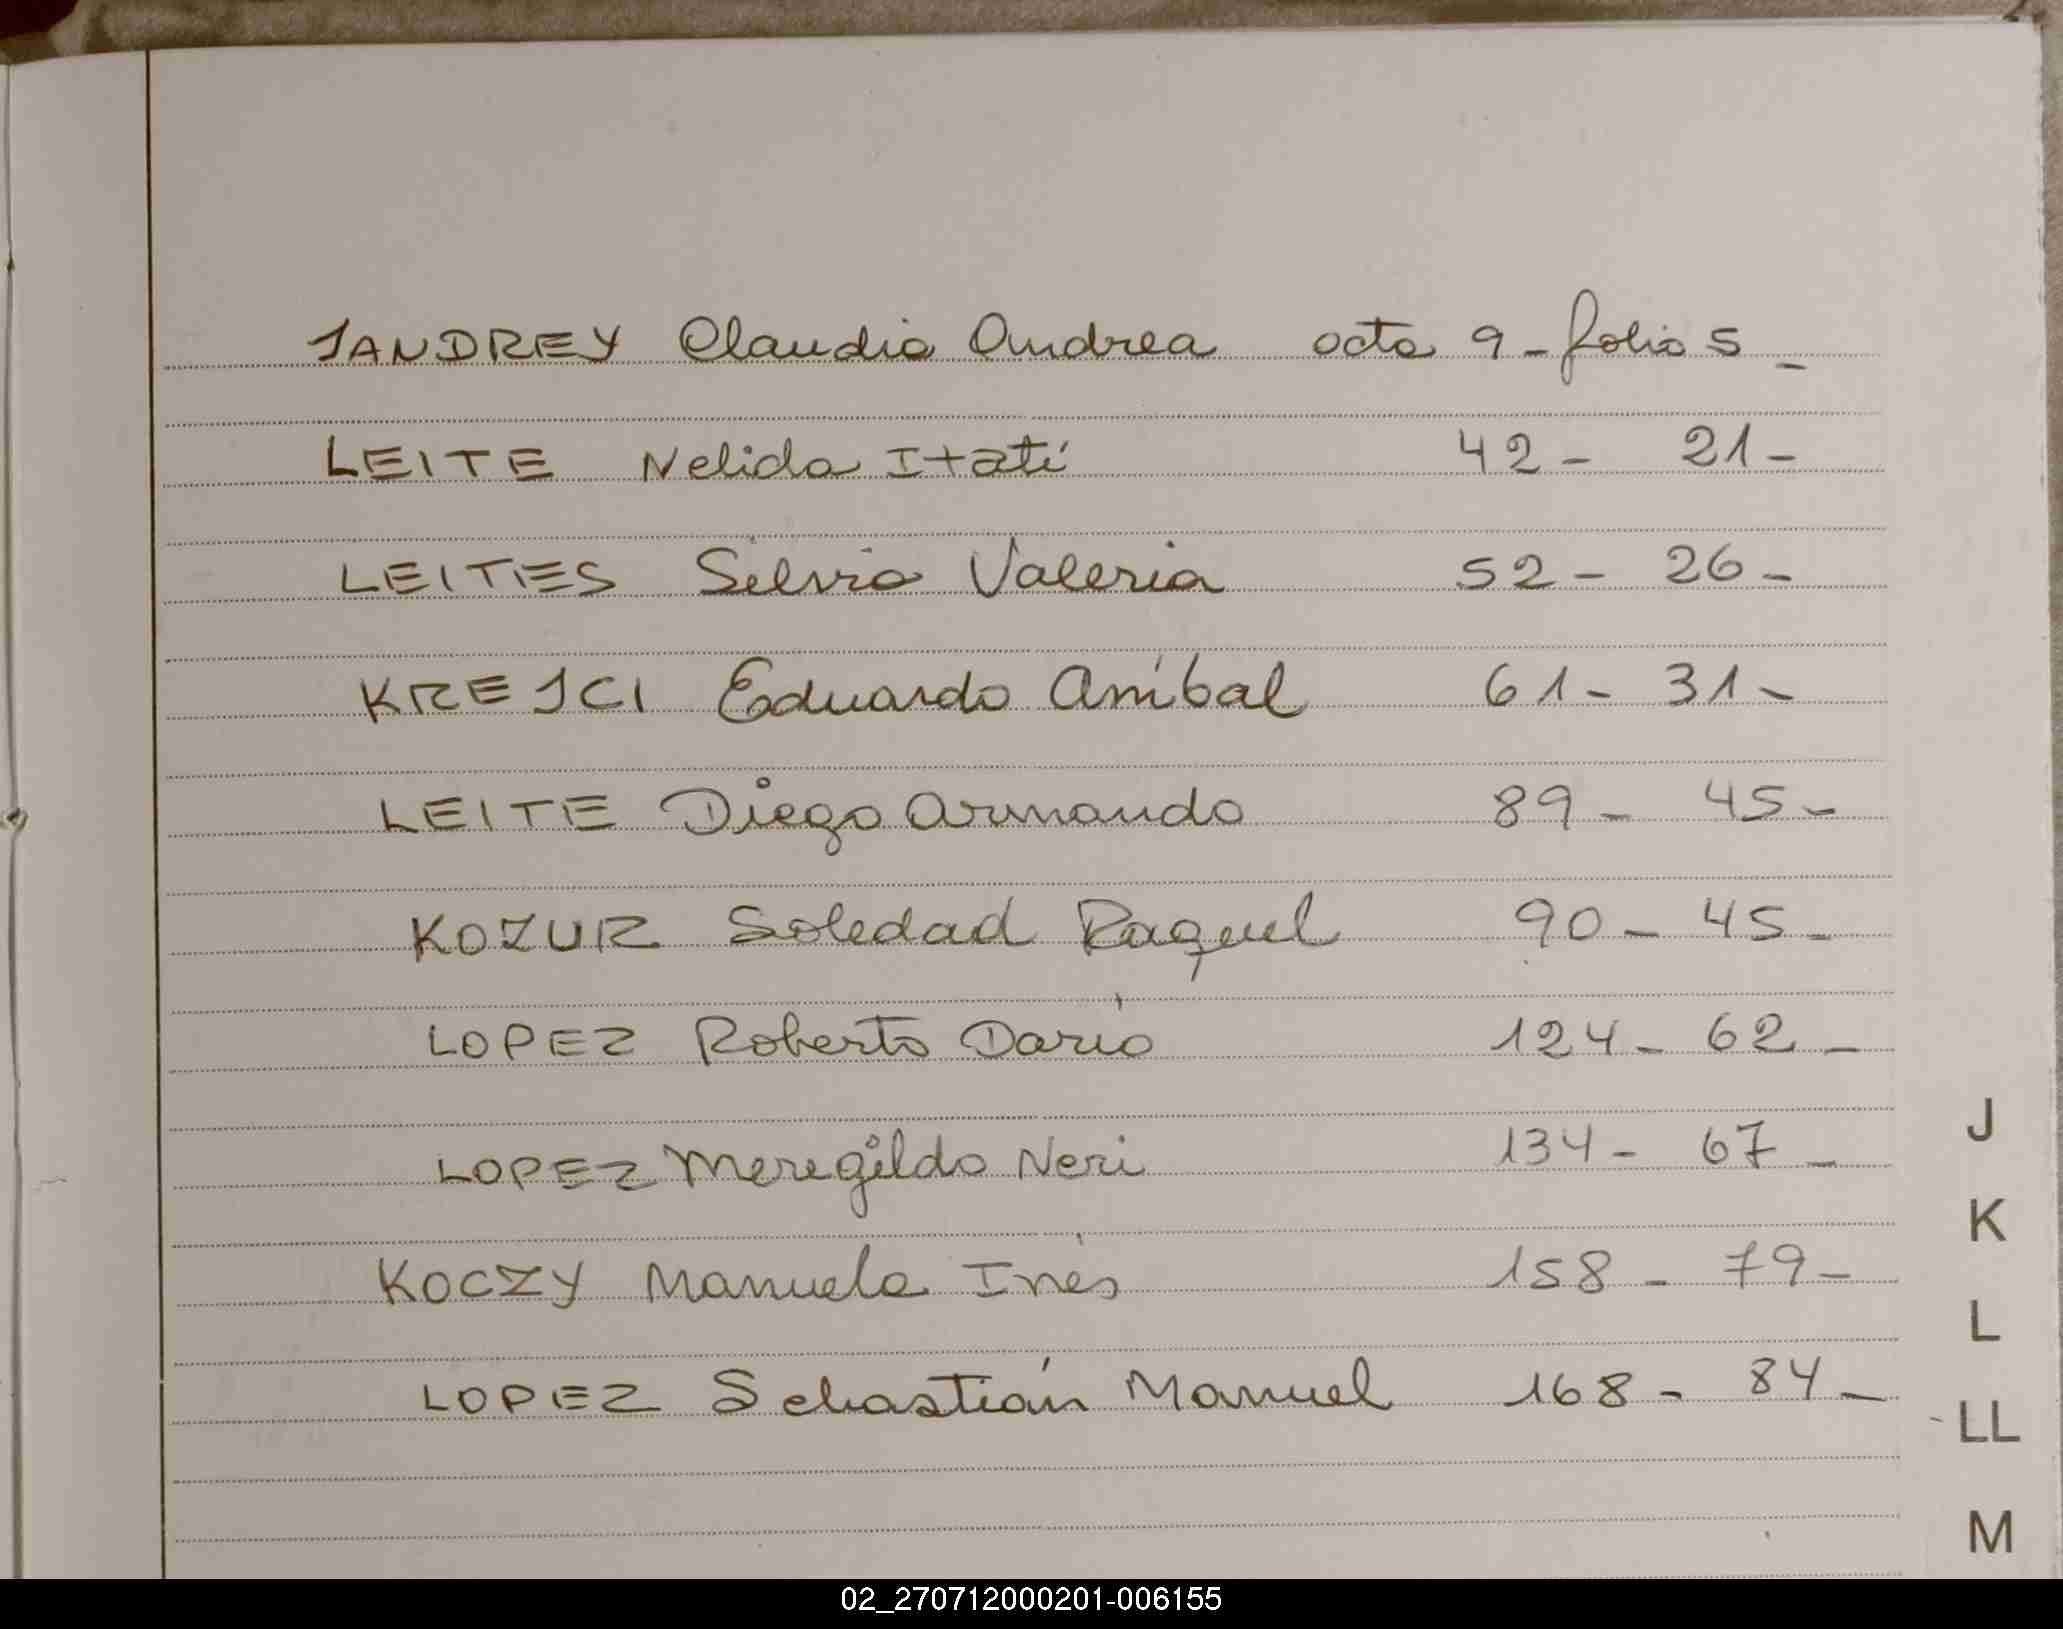 JANDREY Claudia Andrea acta 9 - folio 5 -
LEITE Nelida Itatí 42 - 21 -
LEITES Silvia Valeria 52 - 26 -
KREJCI Eduardo Aníbal 61 - 31 -
LEITE Diego Armando 89 - 45 -
KOZUR Soledad Raquel 90 - 45 -
LOPEZ Roberto Darío 124 - 62 -
LOPEZ Meregildo Neri 134 - 67 -
KOCZY Manuela Inés 158 - 79 -
LOPEZ Sebastián Manuel 168 - 84 -
J
K
L
LL
M
02_270712000201-006155